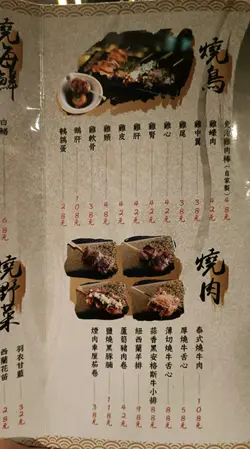 燒鳥
免治雞肉棒(自家製) 48元
雞蠔肉 42元
雞中翼 38元
雞尾 38元
雞心 42元
雞腎 42元
雞肝 42元
雞皮 42元
雞頸 48元
雞軟骨 38元
鵝肝 108元
鵪鶉蛋 28元
燒肉
泰式燒牛肉 108元
厚燒牛舌心 58元
薄切燒牛舌心 88元
蒜香黑安格斯牛小排 88元
紐西蘭羊排 98元
蘆筍豬肉卷 42元
鹽燒黑豚腩 118元
煙肉車厘茄卷 38元
燒海鮮
白鱔 68元
燒野菜
羽衣甘藍 32元
西蘭花苗 28元